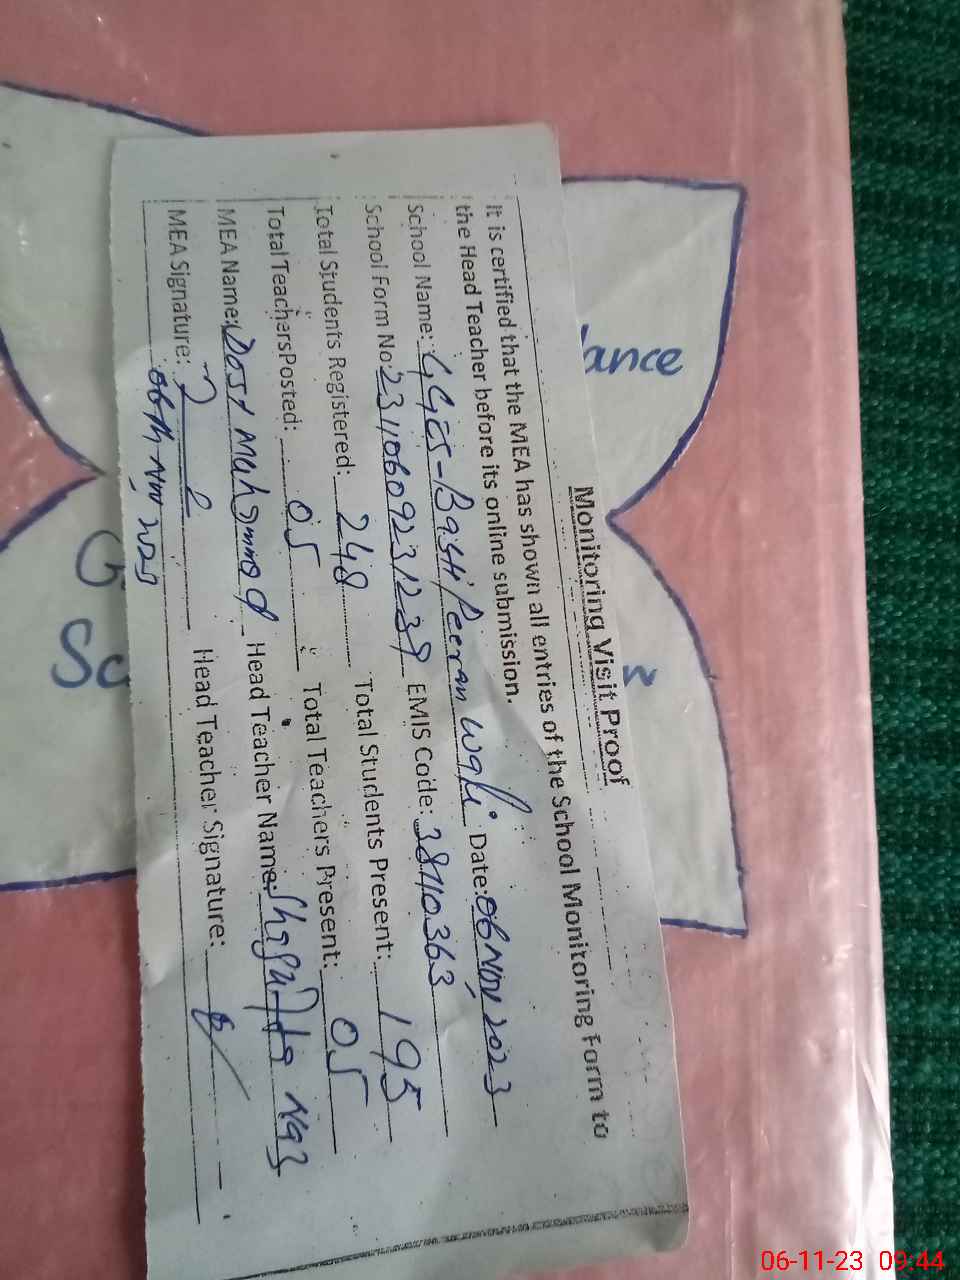 Monitoring Visit Proof
It is certified that the MEA has shown all entries of the School Monitoring Form to
the Head Teacher before its online submission.
School Name: GGES-Basti Peeran Wali Date: 06 Nov, 2023
School Form No: 23110609231239 EMIS Code: 38110363
Total Students Registered: 248 Total Students Present: 195
Total Teachers Posted: 05 Total Teachers Present: 05
MEA Name: Dost Muhammad Head Teacher Name: Shagufta Naz
MEA Signature: Head Teacher Signature:
06th Nov 2023
ance
G
Sc
06-11-23 09:44